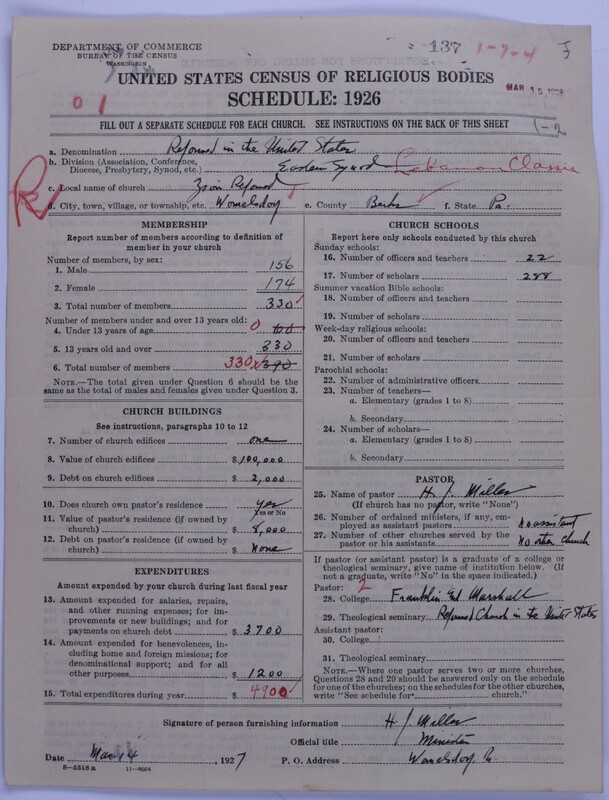 DEPARTMENT OF COMMERCE
BUREAU OF THE CENSUS
WASHINGTON
137 1-7-4
UNITED STATES CENSUS OF RELIGIOUS BODIES
SCHEDULE: 1926
MAR 15
0 1
FILL OUT A SEPARATE SCHEDULE FOR EACH CHURCH. SEE INSTRUCTIONS ON THE BACK OF THIS SHEET
1-2
a. Denomination Reformed in the United States
b. Division (Association, Conference, Diocese, Presbytery, Synod, etc.) Eastern Synod Lebanon Classis
c. Local name of church Zion Reformed
d. City, town, village, or township, etc. Womelsdorf e. County Berks f. State Pa.
MEMBERSHIP
Report number of members according to definition of member in your church
Number of members, by sex:
1. Male 156
2. Female 174
3. Total number of members 330
Number of members under and over 13 years old:
4. Under 13 years of age 0 60
5. 13 years old and over 330
6. Total number of members 330 390
NOTE.—The total given under Question 6 should be the same as the total of males and females given under Question 3.
CHURCH BUILDINGS
See instructions, paragraphs 10 to 12
7. Number of church edifices one
8. Value of church edifices $100,000
9. Debt on church edifices $2,000
10. Does church own pastor's residence yes
Yes or No
11. Value of pastor's residence (if owned by church) $8,000
12. Debt on pastor's residence (if owned by church) $None
EXPENDITURES
Amount expended by your church during last fiscal year
13. Amount expended for salaries, repairs, and other running expenses; for improvements or new buildings; and for payments on church debt $3700
14. Amount expended for benevolences, including home and foreign missions; for denominational support; and for all other purposes $1200
15. Total expenditures during year $4900
CHURCH SCHOOLS
Report here only schools conducted by this church
Sunday schools:
16. Number of officers and teachers 22
17. Number of scholars 288
Summer vacation Bible schools:
18. Number of officers and teachers
19. Number of scholars
Week-day religious schools:
20. Number of officers and teachers
21. Number of scholars
Parochial schools:
22. Number of administrative officers
23. Number of teachers—
a. Elementary (grades 1 to 8)
b. Secondary
24. Number of scholars—
a. Elementary (grades 1 to 8)
b. Secondary
PASTOR
25. Name of pastor H J Miller
(If church has no pastor, write "None")
26. Number of ordained ministers, if any, employed as assistant pastors No assistant
27. Number of other churches served by the pastor or his assistants No other church
If pastor (or assistant pastor) is a graduate of a college or theological seminary, give name of institution below. (If not a graduate, write "No" in the space indicated.)
Pastor: 2
28. College Franklin and Marshall
29. Theological seminary Reformed Church in the United States
Assistant pastor:
30. College
31. Theological seminary
NOTE.—Where one pastor serves two or more churches, Questions 28 and 29 should be answered only on the schedule for one of the churches; on the schedules for the other churches, write "See schedule for church."
Signature of person furnishing information H J Miller
Official title Minister
Date Mar 14 1927 P. O. Address Womelsdorf Pa.
8-5518 a